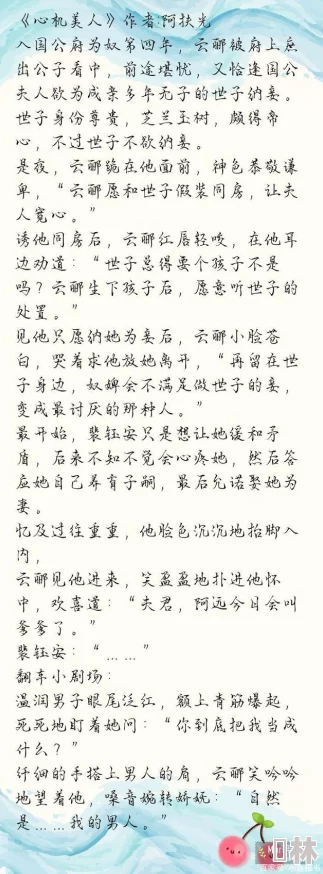 《心机美人》作者:阿扶光
入国公府为奴第四年，云郦被府上庶
出公子看中，前途堪忧，又恰逢国公
夫人欲为成亲多年无子的世子纳妾。
世子身份尊贵，芝兰玉树，颇得帝
心，不过世子不欲纳妾。
是夜，云郦跪在他面前，神色恭敬谦
卑，“云郦愿和世子假装同房，让夫
人宽心。”
诱他同房后，云郦红唇轻咬，在他耳
边劝道：“世子总得要个孩子不是
吗？云郦生下孩子后，愿意听世子的
处置。”
见他只愿纳她为妾后，云郦小脸苍
白，哭着求他放她离开，“再留在世
子身边，奴婢会不满足做世子的妾，
变成最讨厌的那种人。”
最开始，裴钰安只是想让她缓和矛
盾，后来不知不觉会心疼她，然后答
应她自己养育子嗣，最后允诺娶她为
妻。
忆及过往重重，他脸色沉沉地抬脚入
内，
云郦见他进来，笑盈盈地扑进他怀
中，欢喜道：“夫君，阿远今日会叫
爹爹了。”
裴钰安：“……”
翻车小剧场：
温润男子眼尾泛红，额上青筋爆起，
死死地盯着她问：“你到底把我当成
什么？”
纤细的手搭上男人的肩，云郦笑吟吟
地望着他，嗓音婉转娇妩：“自然
是……我的男人。”